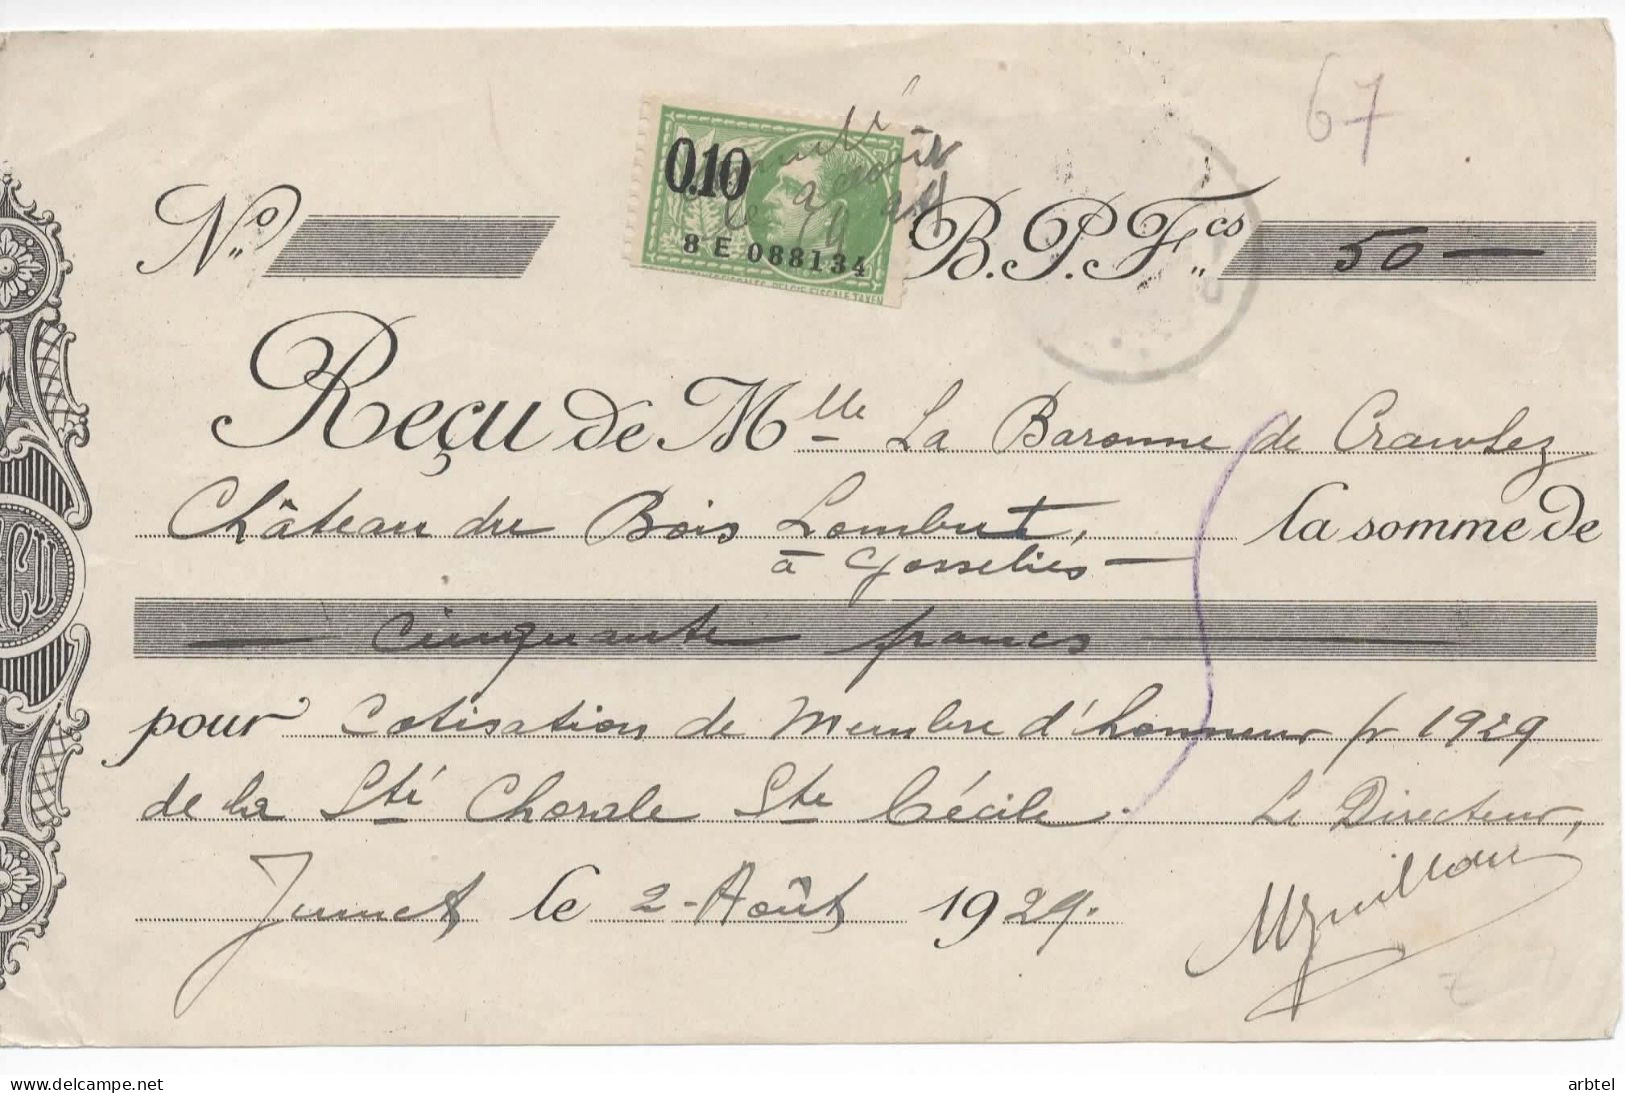 67
0.10
le 2 août
1929
8 E 088134
N.º B.P.Fcs 50 —
BELGIE FISCALE TAXEN
Reçu de Mlle La Baronne de Crawhez
Château du Bois Lombut, la somme de
à Gosselies —
— cinquante francs —
pour Cotisation de Membre d'honneur pr 1929
de la Sté Chorale Ste Cécile. Le Directeur,
Jumet le 2 - Août 1929.
delcampe.net
arbtel